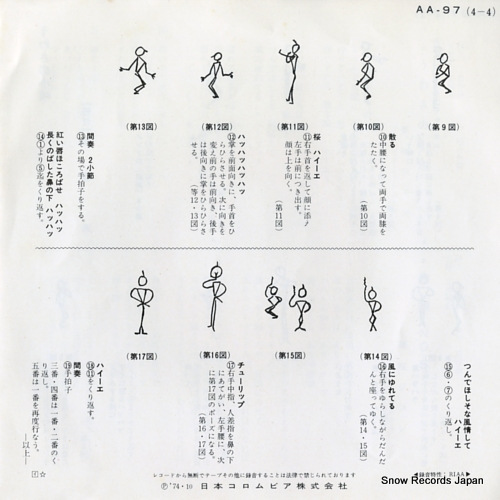 AA-97 (4-4)
(第9図)
(第10図)
(第11図)
(第12図)
(第13図)
散る
⑩中腰になって両手で両膝を
たたく。
(第10図)
桜 ハイーエ
⑪右手首を返して顔に添え
左手は前につき出す。
顔は上を向く。
(第11図)
ハッハッハッハッ
⑫掌を前面向きに、手首をひ
らひらさせる。次に向きを
変え前の手は前向き、後手
は後向きに掌をひらひらさ
せる。
(第12・13図)
間奏 2小節
⑬その場で手拍子をする。
紅い唇ほころばせ ハッハッ
長くのばした鼻の下 ハッハッ
⑭①より⑤迄をくり返す。
(第14図)
(第15図)
(第16図)
(第17図)
つんでほしそな風情して
ハイーエ
⑮⑥・⑦のくり返し。
風にゆれてる
⑯右手をゆらしながらだんだ
んと座ってゆく。
(第14・15図)
チューリップ
⑰右手中指、人差指を鼻の下
にあてがい、左手腰に、次
に第17図のポーズになる。
(第16・17図)
ハイーエ
⑱⑪をくり返す。
間奏
⑲手拍子
三番・四番は一番・二番のく
り返し。
五番は一番を再度行なう。
—以上—
レコードから無断でテープその他に録音することは法律で禁じられております
◀録音特性:RIAA▶
Ⓟ '74・10 日本コロムビア株式会社
Snow Records Japan